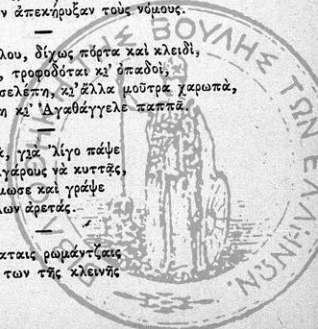 ν ἀπεκήρυξαν τοὺς νόμους.
λου, δίχως πόρτα καὶ κλειδὶ,
, τροφοδόται κι' ὀπαδοὶ,
σελέπη, κι' ἄλλα μοῦτρα χαρωπὰ,
η κι' Ἀγαθάγγελε παππᾶ.
ᾶ, γιὰ 'λίγο πάψε
ιγάρους νὰ κυττᾷς,
μωσε καὶ γράψε
λων ἀρετάς.
αταις ρωμάντζαις
των τῆς κλεινῆς
ΤΗΣ ΒΟΥΛΗΣ ΤΩΝ ΕΛΛΗΝΩΝ